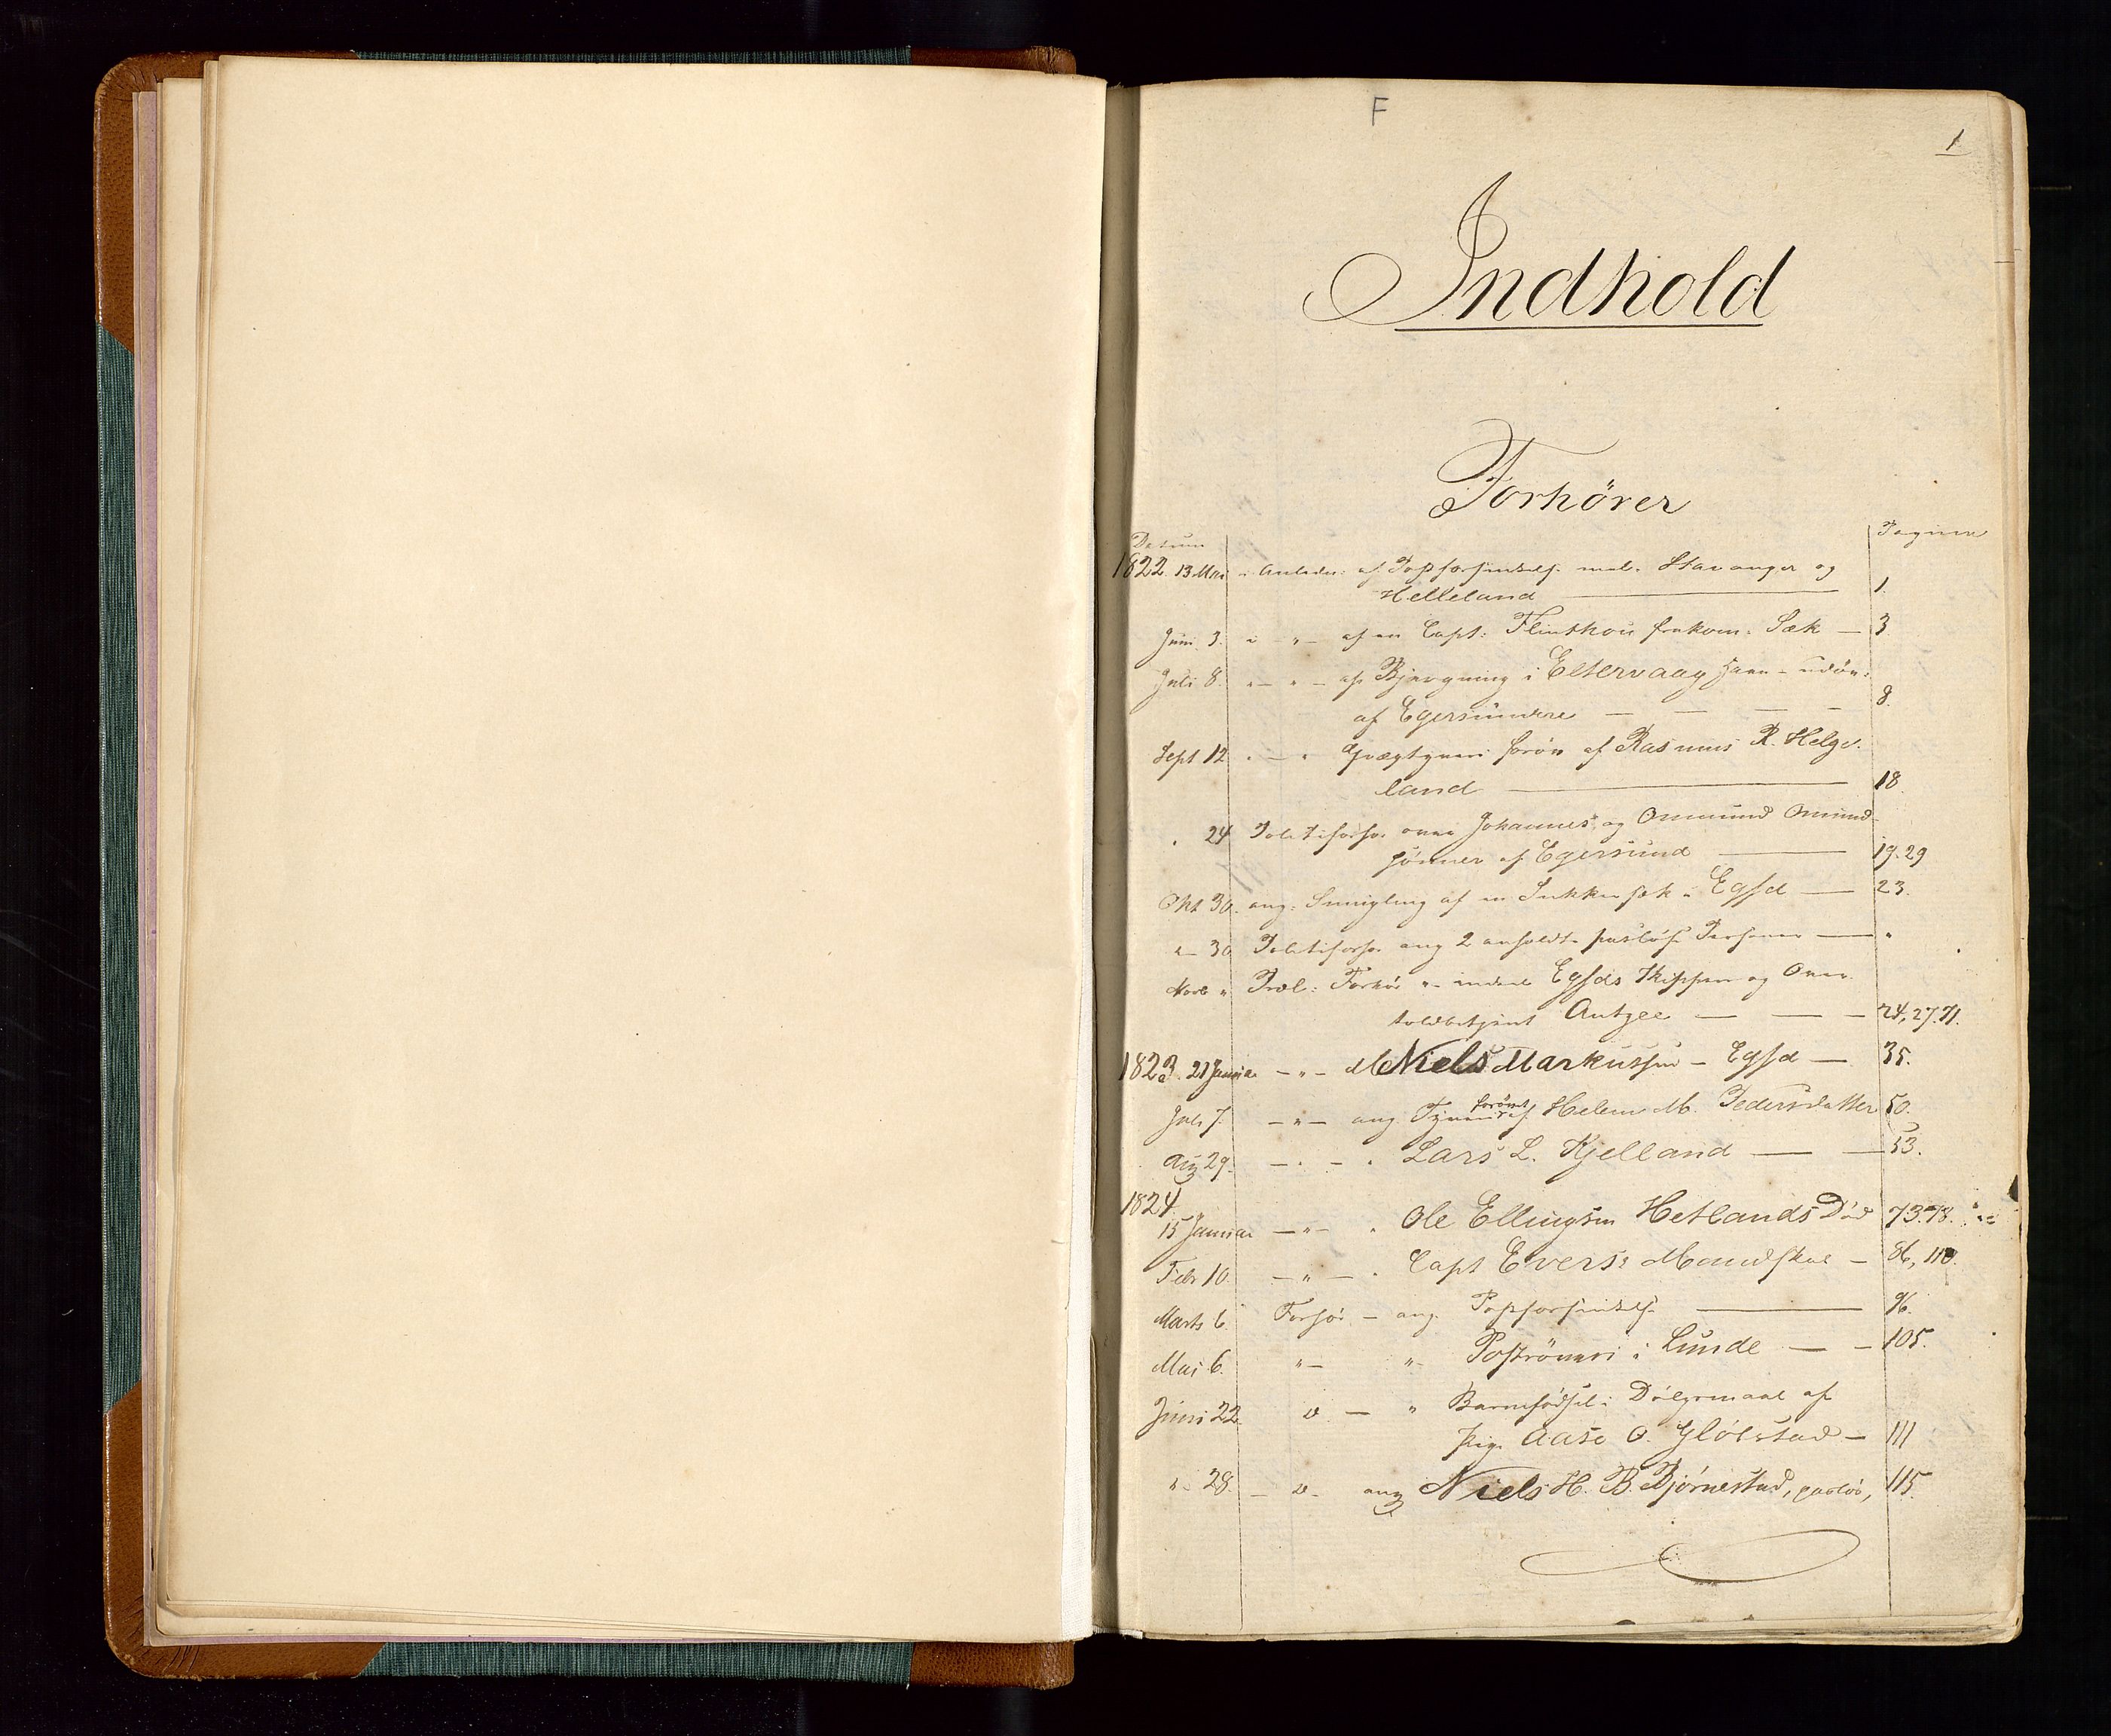 F
1
Indhold
Forhörer
Datum Pagina
1822. 13 Mai i Anledn: af Postforsinkelse mel. Stavanger og
Helleland 1.
Juni 3. i " af en Capt: Flinthou frakom. Sæk 3
Juli 8. af Bjergning i Eltervaag havn udöv:
af Egersundere 8.
Sept 12 " Qvægtyveri foröv af Rasmus R. Helge-
land 18
" 24 Politiforhör over Johannes og Ommund Omund-
sönner af Egersund 19. 29
Okt 30. ang: Smugling af en Sukkersæk i Egsd 23.
" 30 Politiforhör ang 2 anholdte paslöse Personer "
Novb " Præl: Forhör " Egsds Skipper og Over
toldbetjent Antzee 24, 27. 71.
1823. 21 Januar " Niels Markussen Egsd 35.
Juli 7. " ang. Tyveri forövet af Helene M. Pedersdatter 50.
Aug 29. " Lars L. Kjelland 53.
1824
15 Januar " " Ole Ellingsen Hetlands Död 73. 78.
Febr 10. " " Capt Evers's Mandskab 86, 110.
Marts 6. Forhör ang. Postforsinkelse 96.
Mai 6. " " Poströveri i Lunde 105.
Juni 22. " Barnefödsel i Dölgsmaal af
Pige Aase O. Glöbstad 111
" 28. ang Niels H. B. Bjørnestad, paslös, 115.